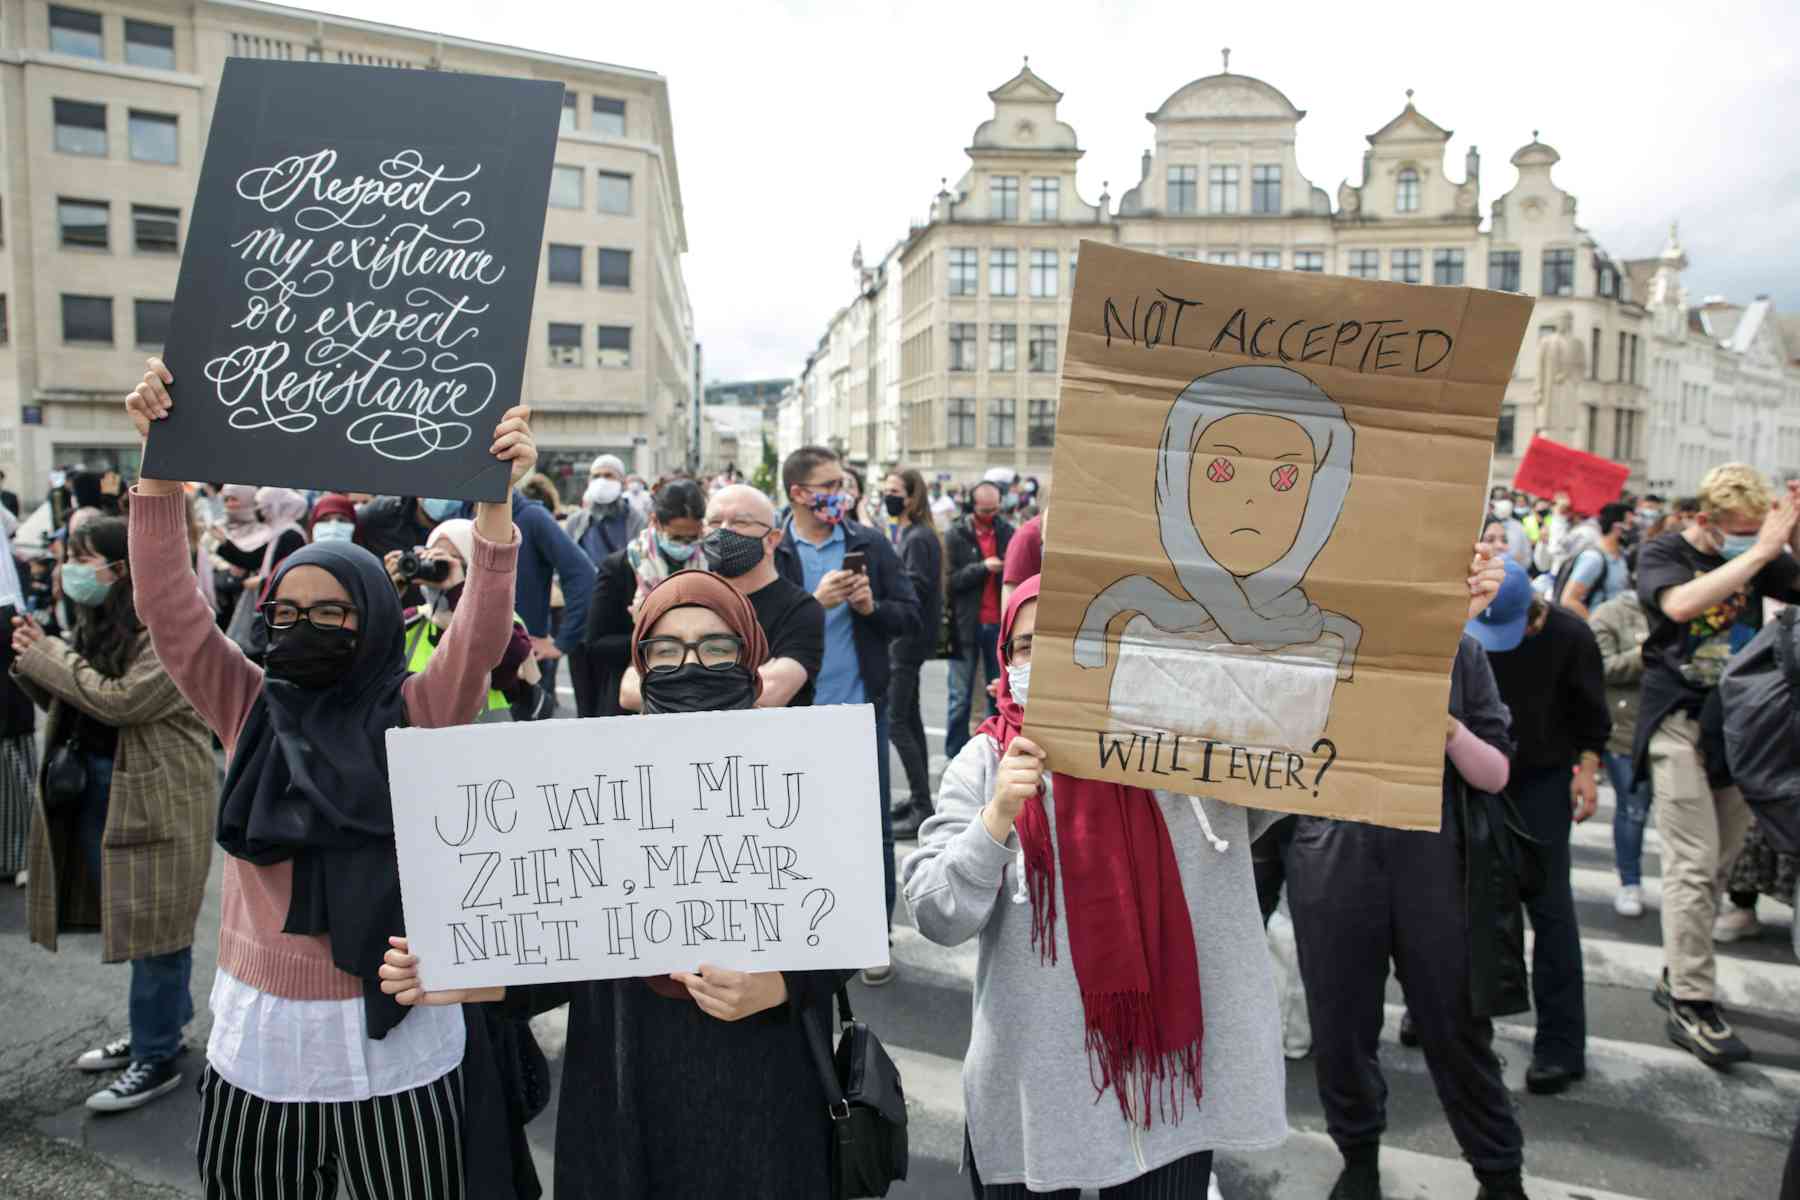 Respect
my existence
or expect
Resistance
JE WIL MIJ
ZIEN, MAAR
NIET HOREN?
NOT ACCEPTED
WILL I EVER?